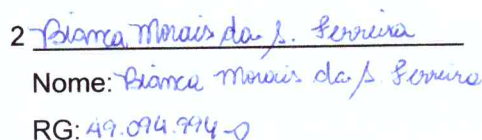 2 Bianca Morais da S. Ferreira
Nome: Bianca Morais da S. Ferreira
RG: 49.094.994-0